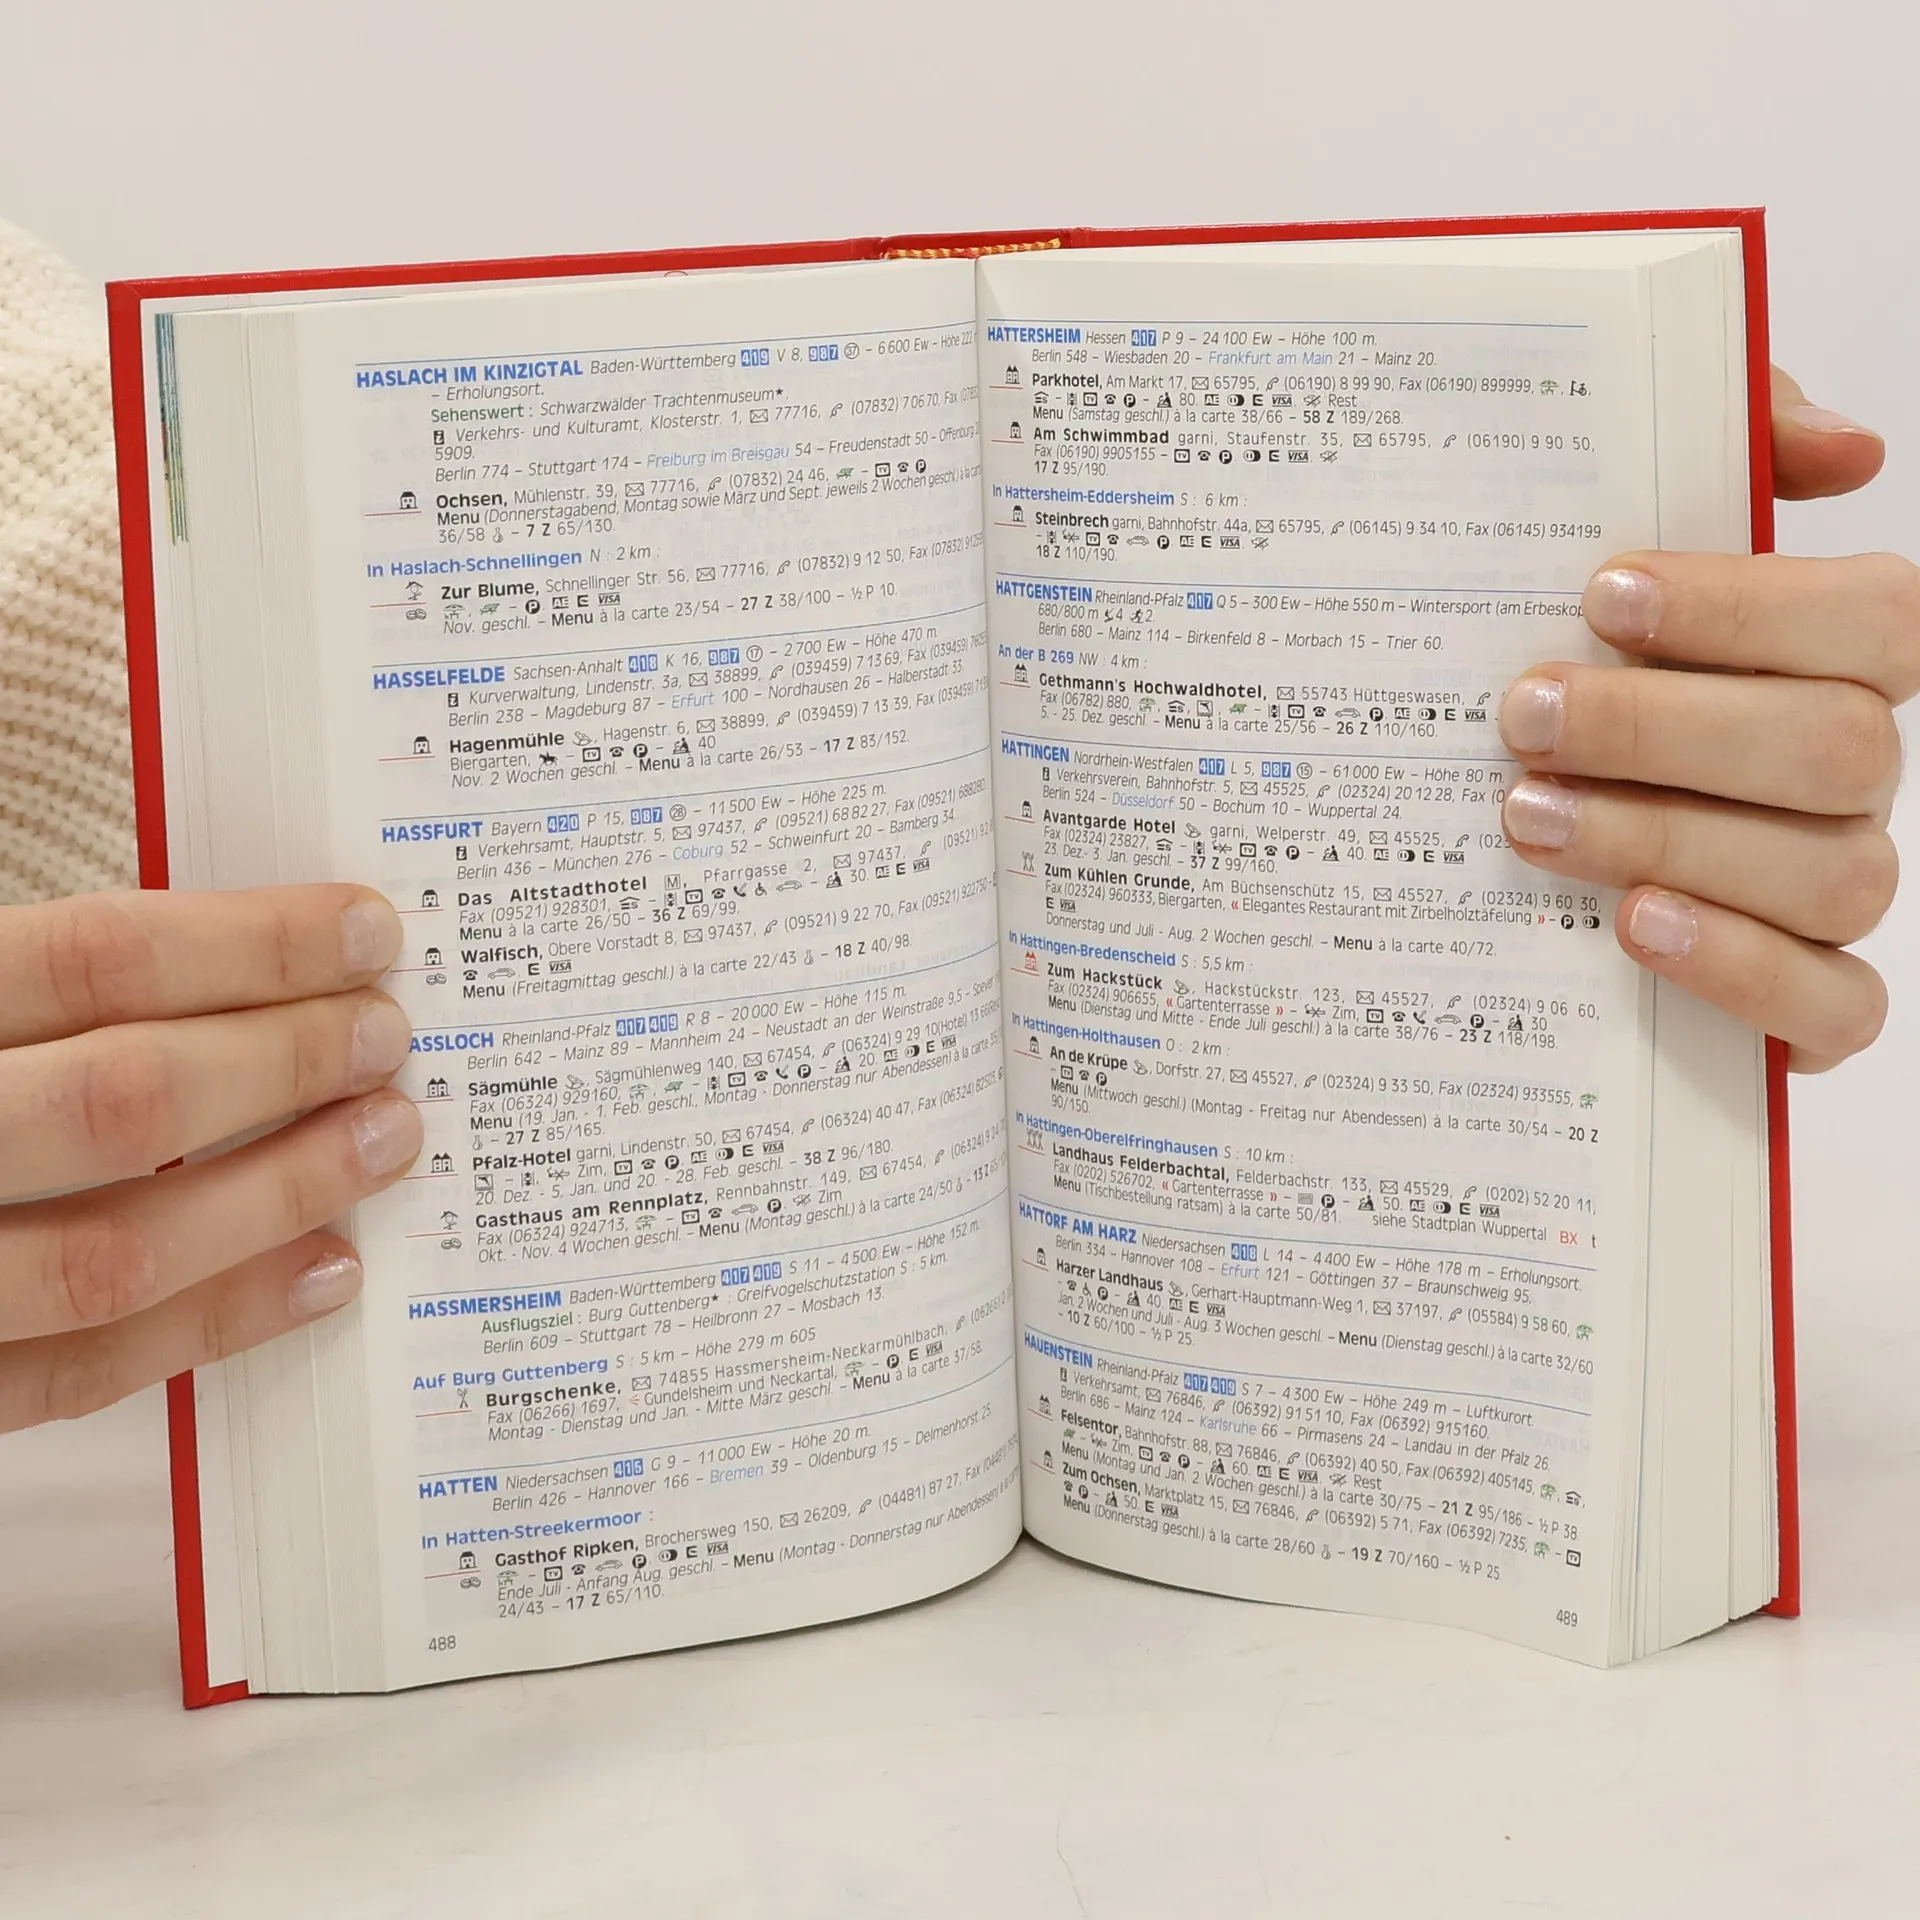 HASLACH IM KINZIGTAL Baden-Württemberg 419 V 8, 987 37 – 6 600 Ew – Höhe 222
– Erholungsort.
Sehenswert : Schwarzwälder Trachtenmuseum★.
Verkehrs- und Kulturamt, Klosterstr. 1, ✉ 77716, (07832) 70670, Fax
5909.
Berlin 774 – Stuttgart 174 – Freiburg im Breisgau 54 – Freudenstadt 50 – Offenburg
Ochsen, Mühlenstr. 39, ✉ 77716, (07832) 24 46, – TV ☎ P
Menu (Donnerstagabend, Montag sowie März und Sept. jeweils 2 Wochen geschl.) à la cart
36/58 – 7 Z 65/130.
In Haslach-Schnellingen N : 2 km :
Zur Blume, Schnellinger Str. 56, ✉ 77716, (07832) 9 12 50, Fax (07832)
– P. AE E VISA
Nov. geschl. – Menu à la carte 23/54 – 27 Z 38/100 – ½ P 10.
HASSELFELDE Sachsen-Anhalt 418 K 16, 987 17 – 2 700 Ew – Höhe 470 m.
Kurverwaltung, Lindenstr. 3a, ✉ 38899, (039459) 7 13 69, Fax (039459)
Berlin 238 – Magdeburg 87 – Erfurt 100 – Nordhausen 26 – Halberstadt 33.
Hagenmühle, Hagenstr. 6, ✉ 38899, (039459) 7 13 39, Fax (039459)
Biergarten, – TV ☎ P – 40
Nov. 2 Wochen geschl. – Menu à la carte 26/53 – 17 Z 83/152.
HASSFURT Bayern 420 P 15, 987 28 – 11 500 Ew – Höhe 225 m.
Verkehrsamt, Hauptstr. 5, ✉ 97437, (09521) 68 82 27, Fax (09521) 688280.
Berlin 436 – München 276 – Coburg 52 – Schweinfurt 20 – Bamberg 34
Das Altstadthotel M, Pfarrgasse 2, ✉ 97437, (09521)
Fax (09521) 928301, – TV ☎ – 30. AE E VISA
Menu à la carte 26/50 – 36 Z 69/99.
Walfisch, Obere Vorstadt 8, ✉ 97437, (09521) 9 22 70, Fax (09521) 922750 –
☎ . E VISA
Menu (Freitagmittag geschl.) à la carte 22/43 – 18 Z 40/98.
ASSLOCH Rheinland-Pfalz 417 419 R 8 – 20 000 Ew – Höhe 115 m.
Berlin 642 – Mainz 89 – Mannheim 24 – Neustadt an der Weinstraße 9,5 – Speyer
Sägmühle, Sägmühlenweg 140, ✉ 67454, (06324) 9 29 10(Hotel)
Fax (06324) 929160, – TV ☎ P – 20. AE E VISA
Menu (19. Jan. - 1. Feb. geschl., Montag - Donnerstag nur Abendessen) à la carte
– 27 Z 85/165.
Pfalz-Hotel garni, Lindenstr. 50, ✉ 67454, (06324) 40 47, Fax (06324)
– Zim, TV ☎ P. AE E VISA
20. Dez. - 5. Jan. und 20. - 28. Feb. geschl. – 38 Z 96/180.
Gasthaus am Rennplatz, Rennbahnstr. 149, ✉ 67454, (06324)
Fax (06324) 924713, – TV ☎ P. Zim
Okt. - Nov. 4 Wochen geschl. – Menu (Montag geschl.) à la carte 24/50 – 13 Z
HASSMERSHEIM Baden-Württemberg 417 419 S 11 – 4 500 Ew – Höhe 152 m.
Ausflugsziel : Burg Guttenberg★ : Greifvogelschutzstation S : 5 km.
Berlin 609 – Stuttgart 78 – Heilbronn 27 – Mosbach 13.
Auf Burg Guttenberg S : 5 km – Höhe 279 m 605
Burgschenke, ✉ 74855 Hassmersheim-Neckarmühlbach,
Fax (06266) 1697, < Gundelsheim und Neckartal, – P. E VISA
Montag - Dienstag und Jan. - Mitte März geschl. – Menu à la carte 37/58.
HATTEN Niedersachsen 415 G 9 – 11 000 Ew – Höhe 20 m.
Berlin 426 – Hannover 166 – Bremen 39 – Oldenburg 15 – Delmenhorst 25.
In Hatten-Streekermoor :
Gasthof Ripken, Brochersweg 150, ✉ 26209, (04481) 87 27, Fax
– TV ☎ P. E VISA
Ende Juli - Anfang Aug. geschl. – Menu (Montag - Donnerstag nur Abendessen)
24/43 – 17 Z 65/110.
488
HATTERSHEIM Hessen 417 P 9 – 24 100 Ew – Höhe 100 m.
Berlin 548 – Wiesbaden 20 – Frankfurt am Main 21 – Mainz 20.
Parkhotel, Am Markt 17, ✉ 65795, (06190) 8 99 90, Fax (06190) 899999,
– TV ☎ P – 80. AE E VISA. Rest
Menu (Samstag geschl.) à la carte 38/66 – 58 Z 189/268.
Am Schwimmbad garni, Staufenstr. 35, ✉ 65795, (06190) 9 90 50,
Fax (06190) 9905155 – TV ☎ P. E VISA.
17 Z 95/190.
In Hattersheim-Eddersheim S : 6 km :
Steinbrech garni, Bahnhofstr. 44a, ✉ 65795, (06145) 9 34 10, Fax (06145) 934199
– TV ☎ P. AE E VISA.
18 Z 110/190.
HATTGENSTEIN Rheinland-Pfalz 417 Q 5 – 300 Ew – Höhe 550 m – Wintersport (am Erbeskop
680/800 m 4 2.
Berlin 680 – Mainz 114 – Birkenfeld 8 – Morbach 15 – Trier 60.
An der B 269 NW : 4 km :
Gethmann's Hochwaldhotel, ✉ 55743 Hüttgeswasen,
Fax (06782) 880, – TV ☎ P. AE E VISA
5. - 25. Dez. geschl. – Menu à la carte 25/56 – 26 Z 110/160.
HATTINGEN Nordrhein-Westfalen 417 L 5, 987 15 – 61 000 Ew – Höhe 80 m.
Verkehrsverein, Bahnhofstr. 5, ✉ 45525, (02324) 20 12 28, Fax (0
Berlin 524 – Düsseldorf 50 – Bochum 10 – Wuppertal 24.
Avantgarde Hotel garni, Welperstr. 49, ✉ 45525, (023
Fax (02324) 23827, – TV ☎ P – 40. AE E VISA
23. Dez.- 3. Jan. geschl. – 37 Z 99/160.
Zum Kühlen Grunde, Am Büchsenschütz 15, ✉ 45527, (02324) 9 60 30,
Fax (02324) 960333, Biergarten, « Elegantes Restaurant mit Zirbelholztäfelung » – P.
E VISA
Donnerstag und Juli - Aug. 2 Wochen geschl. – Menu à la carte 40/72.
In Hattingen-Bredenscheid S : 5,5 km :
Zum Hackstück, Hackstückstr. 123, ✉ 45527, (02324) 9 06 60,
Fax (02324) 906655, « Gartenterrasse » – Zim, TV ☎ P – 30
Menu (Dienstag und Mitte - Ende Juli geschl.) à la carte 38/76 – 23 Z 118/198.
In Hattingen-Holthausen O : 2 km :
An de Krüpe, Dorfstr. 27, ✉ 45527, (02324) 9 33 50, Fax (02324) 933555,
– TV ☎ P
Menu (Mittwoch geschl.) (Montag - Freitag nur Abendessen) à la carte 30/54 – 20 Z
90/150.
In Hattingen-Oberelfringhausen S : 10 km :
Landhaus Felderbachtal, Felderbachstr. 133, ✉ 45529, (0202) 52 20 11,
Fax (0202) 526702, « Gartenterrasse » – P – 50. AE E VISA
Menu (Tischbestellung ratsam) à la carte 50/81. siehe Stadtplan Wuppertal BX t
HATTORF AM HARZ Niedersachsen 418 L 14 – 4 400 Ew – Höhe 178 m – Erholungsort.
Berlin 334 – Hannover 108 – Erfurt 121 – Göttingen 37 – Braunschweig 95.
Harzer Landhaus, Gerhart-Hauptmann-Weg 1, ✉ 37197, (05584) 9 58 60,
– ☎ P – 40. AE E VISA
Jan. 2 Wochen und Juli - Aug. 3 Wochen geschl. – Menu (Dienstag geschl.) à la carte 32/60
– 10 Z 60/100 – ½ P 25.
HAUENSTEIN Rheinland-Pfalz 417 419 S 7 – 4 300 Ew – Höhe 249 m – Luftkurort.
Verkehrsamt, ✉ 76846, (06392) 91 51 10, Fax (06392) 915160.
Berlin 686 – Mainz 124 – Karlsruhe 66 – Pirmasens 24 – Landau in der Pfalz 26.
Felsentor, Bahnhofstr. 88, ✉ 76846, (06392) 40 50, Fax (06392) 405145,
– Zim, TV ☎ P – 60. AE E VISA. Rest
Menu (Montag und Jan. 2 Wochen geschl.) à la carte 30/75 – 21 Z 95/186 – ½ P 38.
Zum Ochsen, Marktplatz 15, ✉ 76846, (06392) 5 71, Fax (06392) 7235, – TV
☎ P – 50. E VISA
Menu (Donnerstag geschl.) à la carte 28/60 – 19 Z 70/160 – ½ P 25.
489